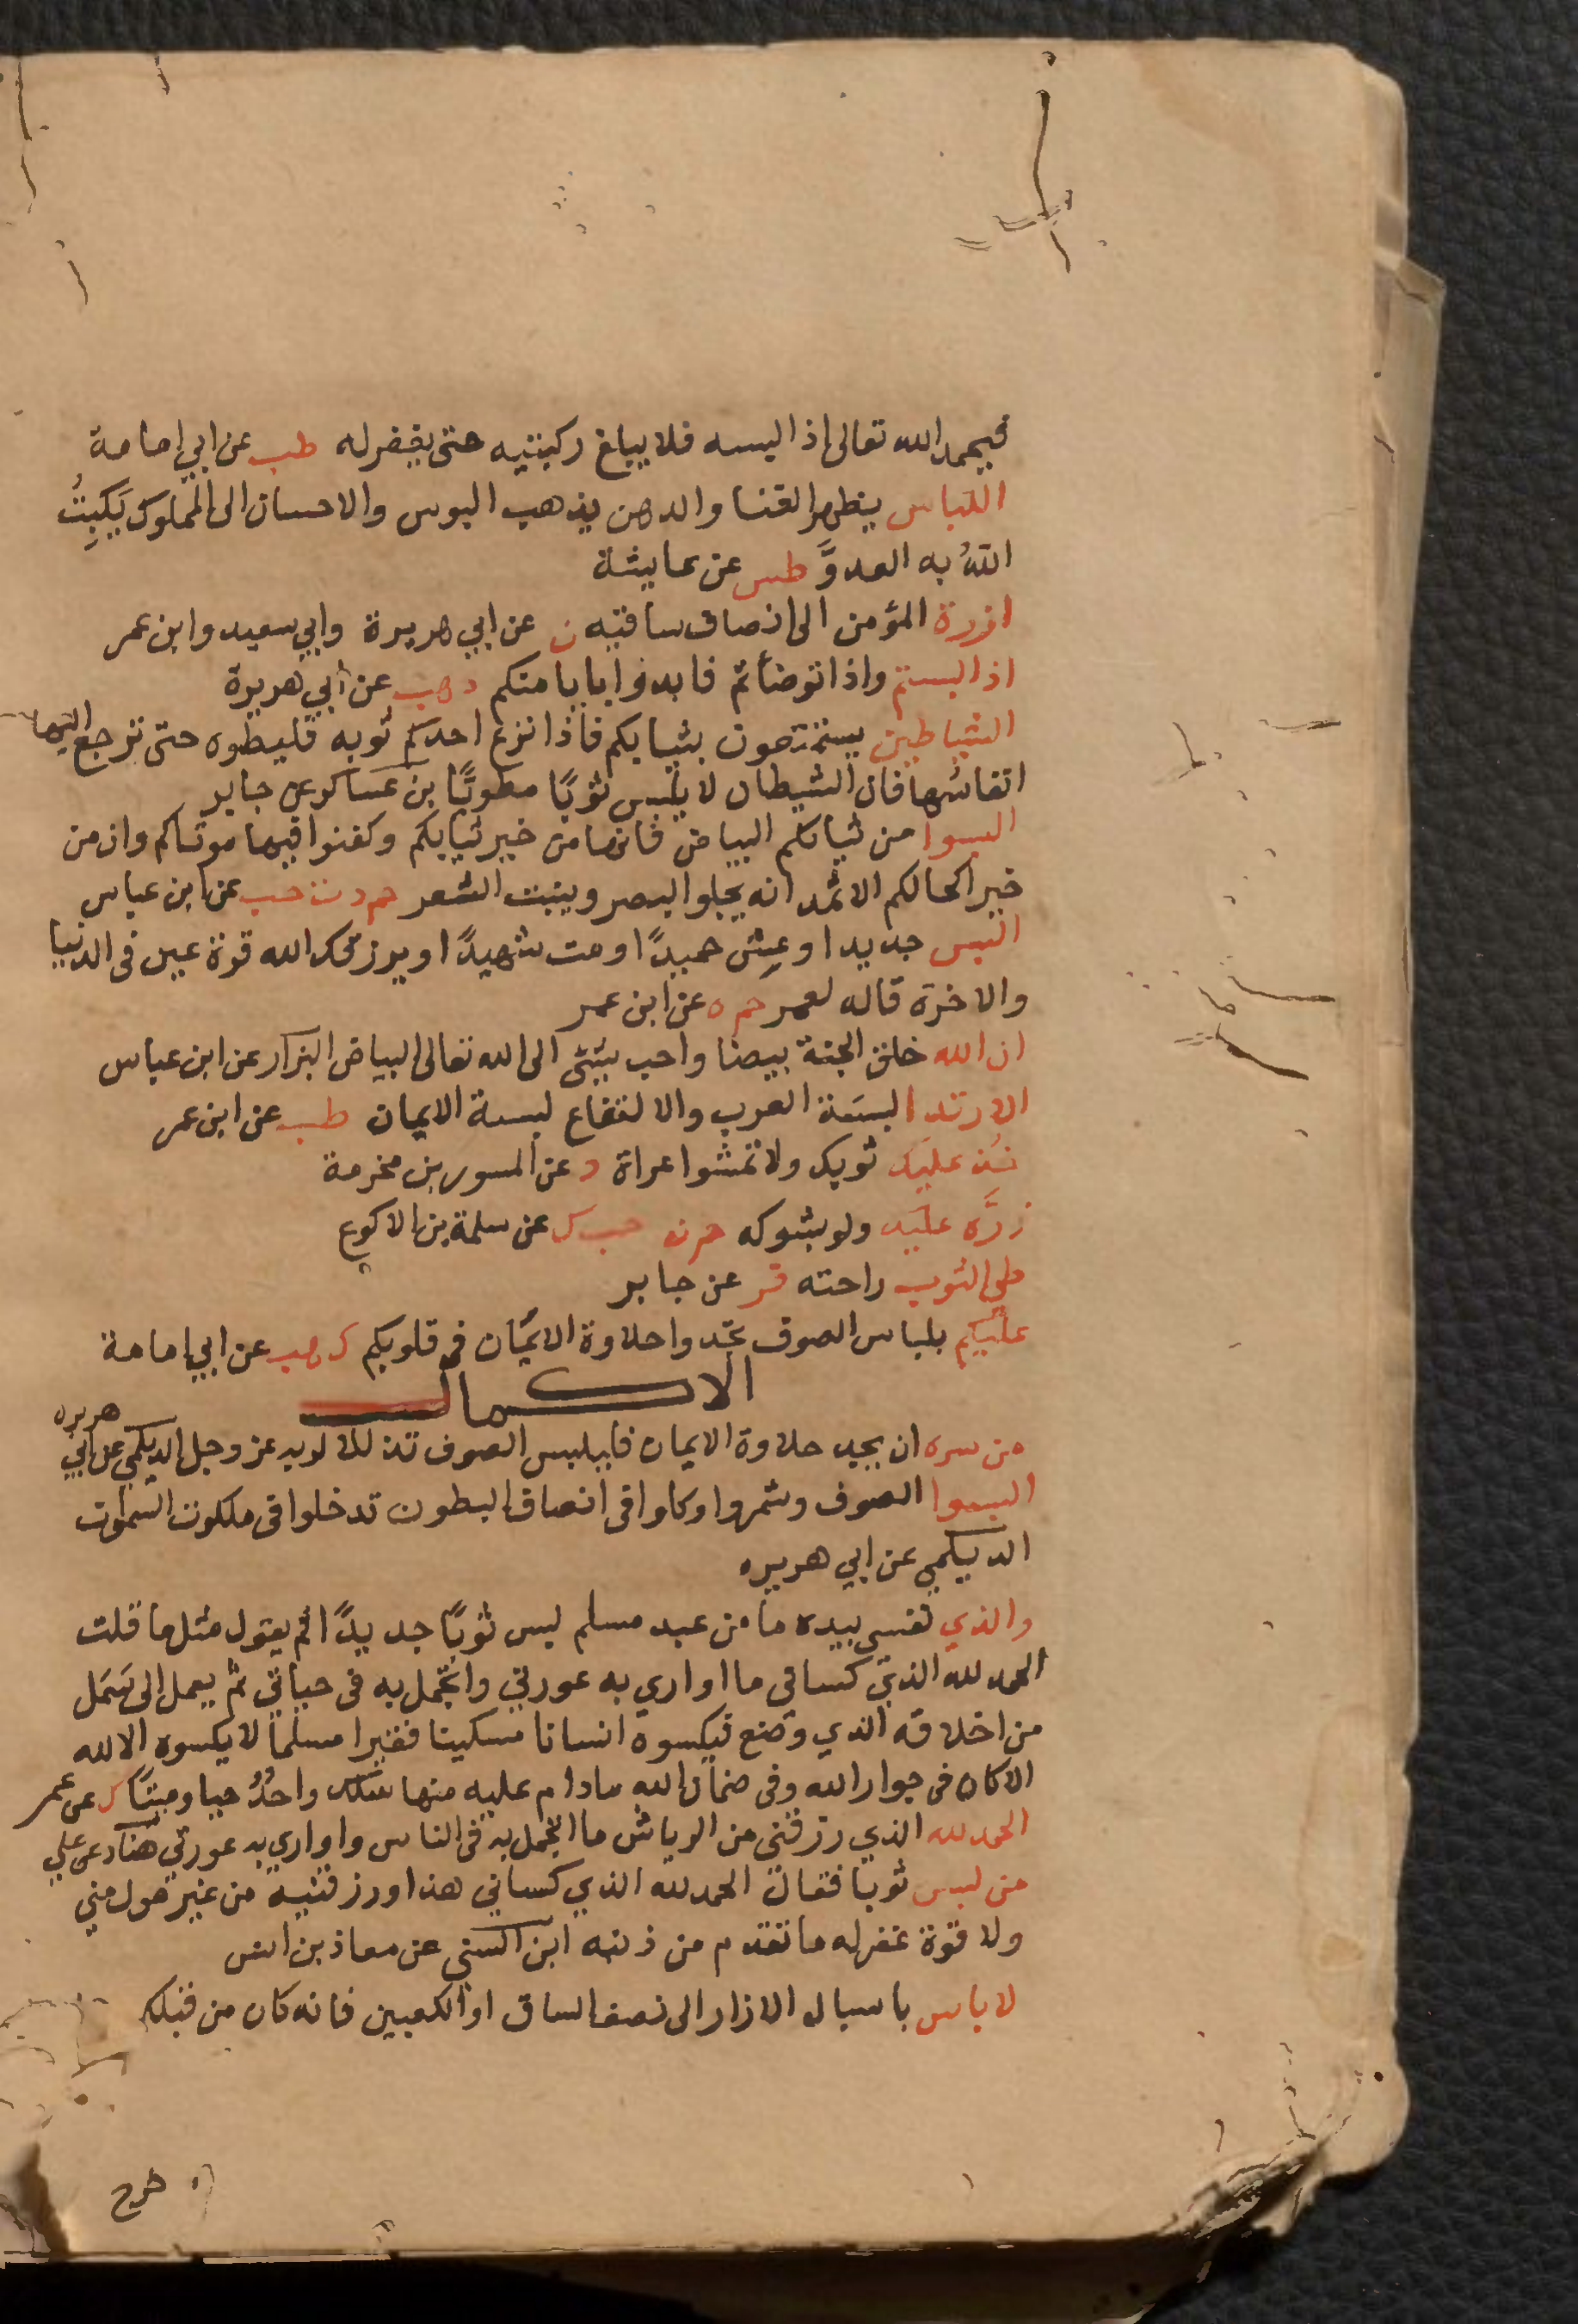 فيحمد الله تعالى اذا لبسه فلا يبلغ ركبتيه حتى يغفر له طب عن ابي امامة
اللباس يظهر الغنا والدهن يذهب البوس والاحسان الى المملوك يَكبِتُ
اللهُ به العدوَّ طس عن عايشة
ازرة المؤمن الى انصاف ساقيه ن عن ابي هريرة وابي سعيد وابن عمر
اذا لبستم واذا توضأتم فابدؤا بايامنكم د هب عن أبي هريرة
الشياطين يستمتعون بثيابكم فاذا نزع احدكم ثوبه فليطوه حتى ترجع اليها
انفاسُها فان الشيطان لا يلبس ثوبًا مطويًّا بن عساكر عن جابر
البسوا من ثيابكم البياض فانها من خير ثيابكم وكفنوا فيها موتاكم وان من
خير اكحالكم الاثمد انه يجلو البصر وينبت الشعر حم د ت حب عن ابن عباس
البس جديدا وعِش حميدًا ومت شهيدًا ويرزقك الله قرة عين في الدنيا
والاخرة قاله لعمر حم ه عن ابن عمر
ان الله خلق الجنة بيضا واحب شئ الى الله تعالى البياض البزار عن ابن عباس
الارتدا لبسَة العرب والالتفاع لبسة الايمان طب عن ابن عمر
خُذ عليك ثوبك ولا تمشوا عراة د عن المسور بن مخرمة
زرَّه عليه ولو بشوكه حم ن حب ك عن سلمة بن الاكوع
طي الثوب راحته فر عن جابر
عليكم بلباس الصوف تجدوا حلاوة الايمان في قلوبكم ك هب عن ابي امامة
الاكمال
من سره ان يجد حلاوة الايمان فليلبس الصوف تذللا لربه عز وجل الديلمي عن ابي هريره
البسوا الصوف وشمروا وكلوا في انصاف البطون تدخلوا في ملكوت السموات
الديلمي عن ابي هريره
والذي نفسي بيده ما من عبد مسلم لبس ثوبًا جديدًا ثم يقول مثل ما قلت
الحمد لله الذي كساني ما اواري به عورتي واتجمل به في حياتي ثم يعمل الى سَمَل
من اخلاقه الذي وضع فيكسوه انسانا مسكينا فقيرا مسلما لا يكسوه الا لله
الا كان في جوار الله وفي ضمان الله مادام عليه منها سلك واحدٌ حيا وميتًا ك عن عمر
الحمد لله الذي رزقني من الرياش ما اتجمل به في الناس واواري به عورتي هناد عن علي
من لبس ثوبا فقال الحمد لله الذي كساني هذا ورزقنيه من غير حول مني
ولا قوة غفر له ما تقدم من ذنبه ابن السني عن معاذ بن انس
لا باس باسبال الازار الى نصف الساق او الكعبين فانه كان من قبلكم